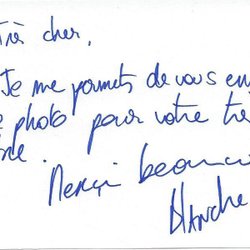 cher,
Je me permets de vous
photo pour votre
Merci beaucou
Blanche